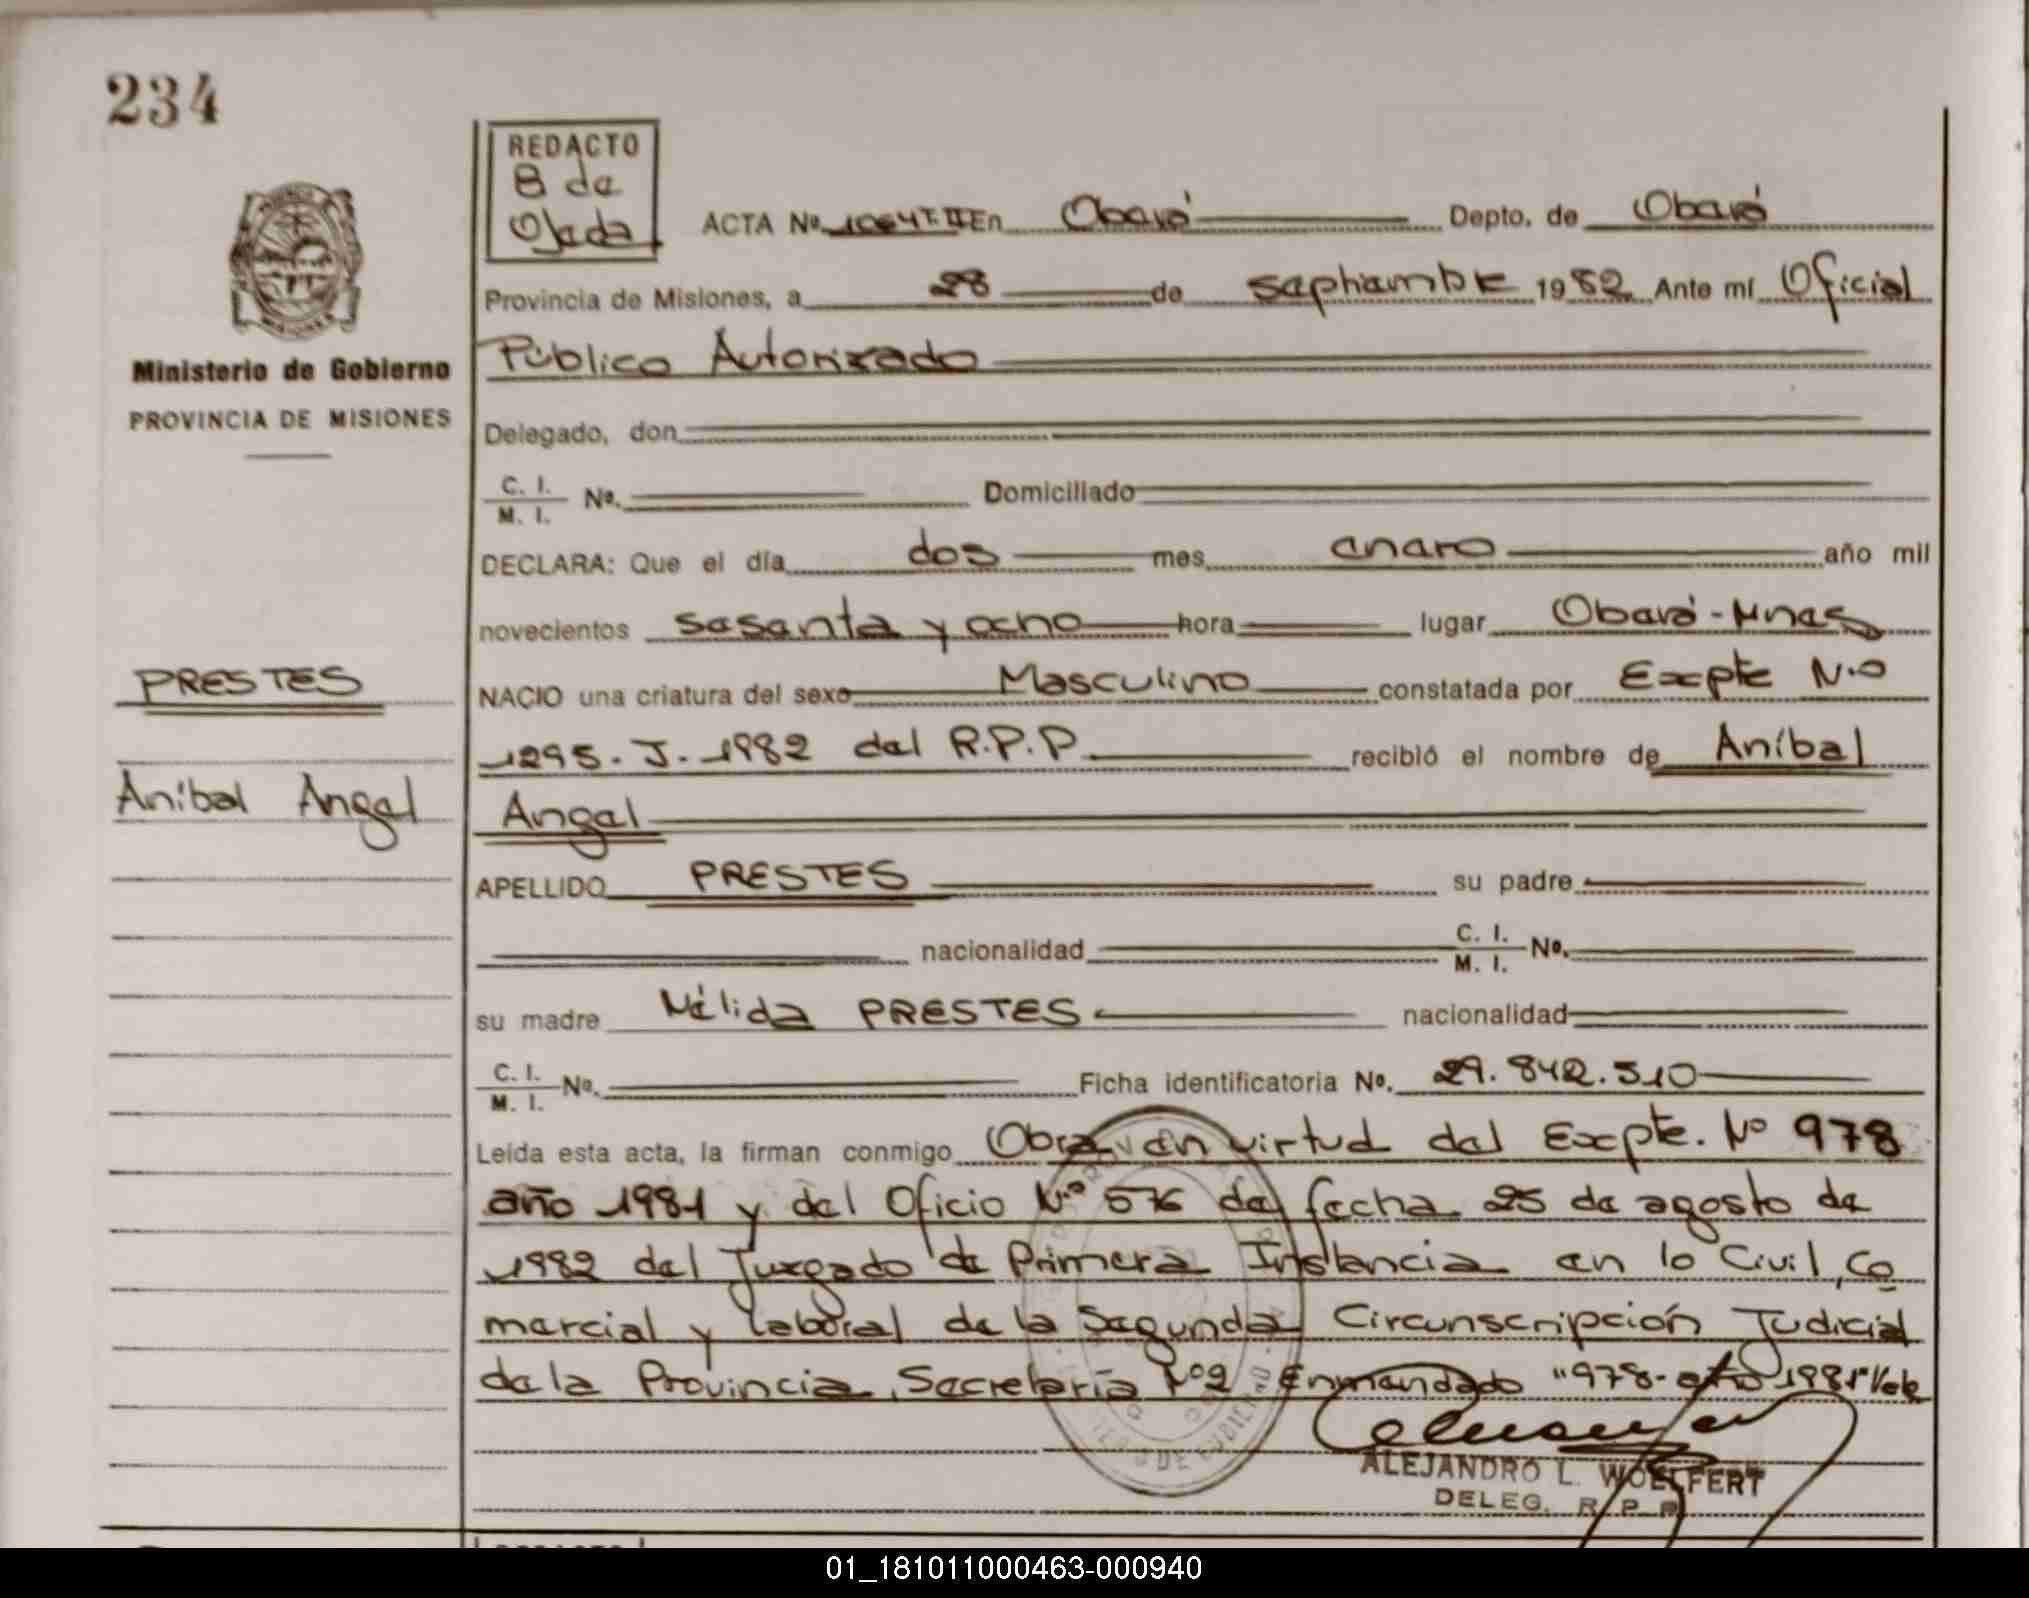 234
REDACTO
B de
Ojeda
ACTA No. 1064 T. II En Oberá Depto. de Oberá
Provincia de Misiones, a 28 de septiembre 1982 Ante mí Oficial
Público Autorizado
Ministerio de Gobierno
PROVINCIA DE MISIONES
Delegado, don
C. I.
M. I. No. Domiciliado
DECLARA: Que el día dos mes enero año mil
novecientos sesenta y ocho hora lugar Oberá - Mnes
PRESTES
NACIO una criatura del sexo Masculino constatada por Expte N.o
1295. J. 1982 del R.P.P. recibió el nombre de Aníbal
Aníbal Angel
Angel
APELLIDO PRESTES su padre
nacionalidad C. I.
M. I. No.
su madre Nélida PRESTES nacionalidad
C. I.
M. I. No. Ficha identificatoria No. 29.842.510
Leída esta acta, la firman conmigo Obra en virtud del Expte. No 978
año 1981 y del Oficio N.o 576 de fecha 25 de agosto de
1982 del Juzgado de Primera Instancia en lo Civil, Co
mercial y laboral de la Segunda Circunscripción Judicial
de la Provincia, Secretaría No 2 Enmendado "978-año 1981" Vale
ALEJANDRO L. WOELFERT
DELEG. R. P. P.
01_181011000463-000940